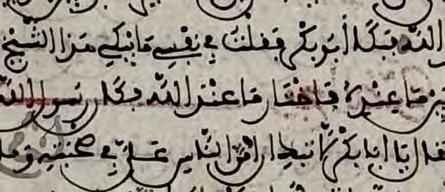 الله فبكا أبو بكر فقلت في نفسي ما يبكي هذا الشيخ
ما عنده فاختار ما عند الله فكان رسول الله
فقال يا أبا بكر لا تبك إن أمن الناس علي في صحبته وما